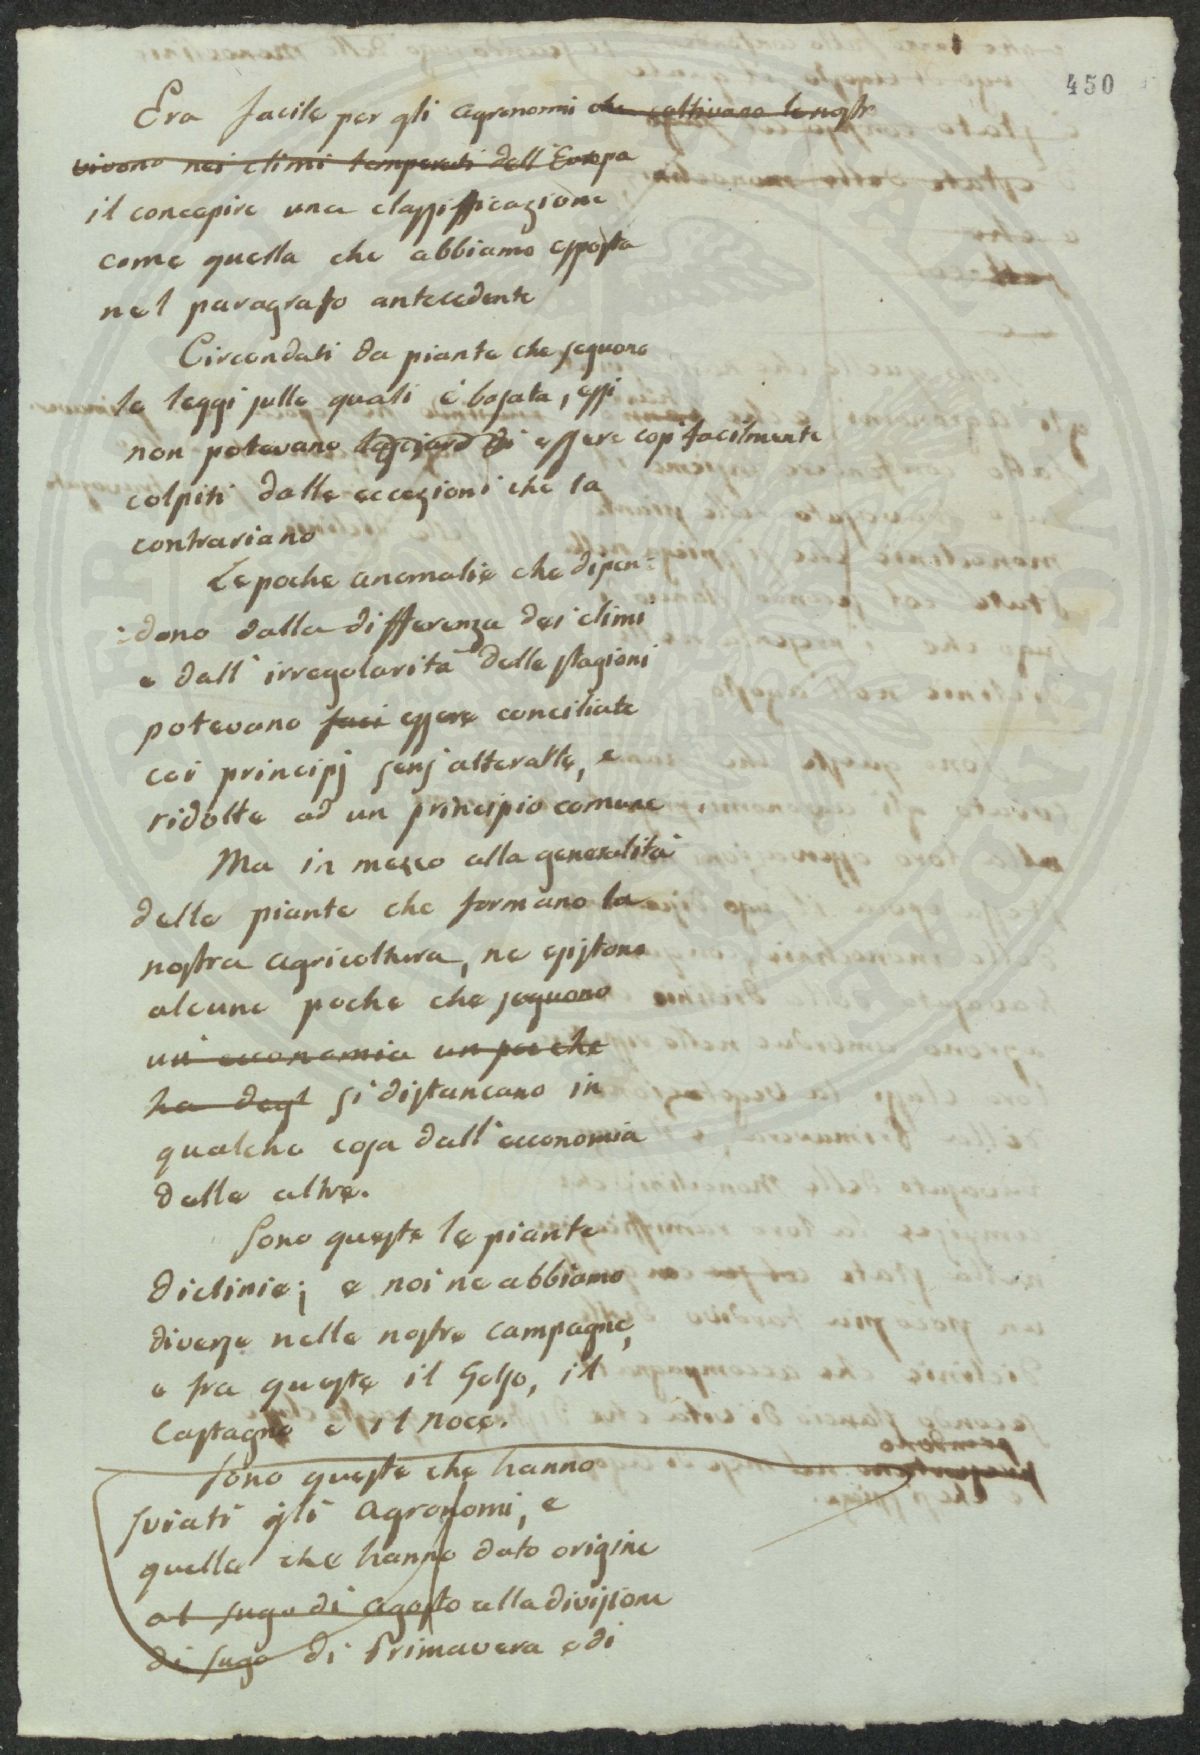 450
Era facile per gli agronomi che coltivano le nostr
vivono nei climi temperati dell'Europa
il concepire una classificazione
come quella che abbiamo esposta
nel paragrafo antecedente
Circondati da piante che seguono
le leggi sulle quali è basata, essi
non potevano essere così facilmente
colpiti dalle eccezioni che la
contrariano
Le poche anomalie che dipen=
=dono dalla differenza dei climi
e dall'irregolarità delle stagioni
potevano faci essere conciliate
coi principj senz'alterarlle, e
ridotte ad un principio comune
Ma in mezzo alla generalità
delle piante che formano la
nostra agricoltura, ne esistono
alcune poche che seguono
un' economia un po che
ha degl si distancano in
qualche cosa dall'economia
delle altre.
Sono queste le piante
diclinie; e noi ne abbiamo
diverse nelle nostre campagne,
e fra queste il Gelso, il
Castagno e il Noce.
Sono queste che hanno
sviati gli Agronomi, e
quelle che hanno dato origine
al sugo di agosto alla divisione
di sugo di Primavera e di